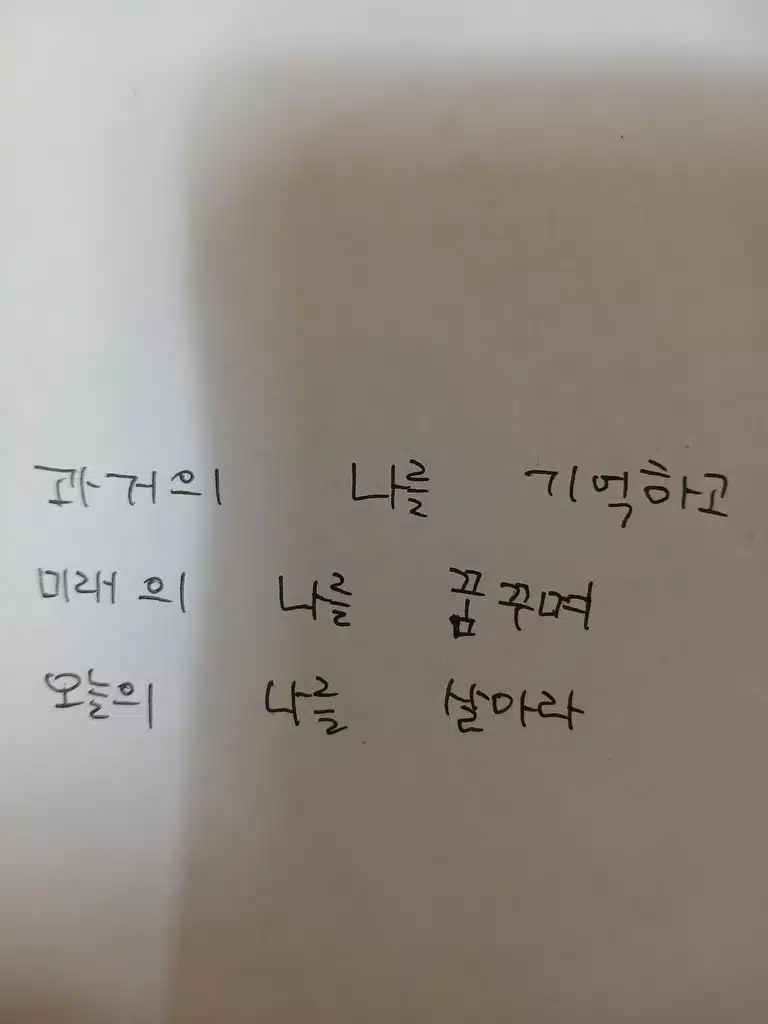 과거의 나를 기억하고
미래의 나를 꿈꾸며
오늘의 나를 살아라